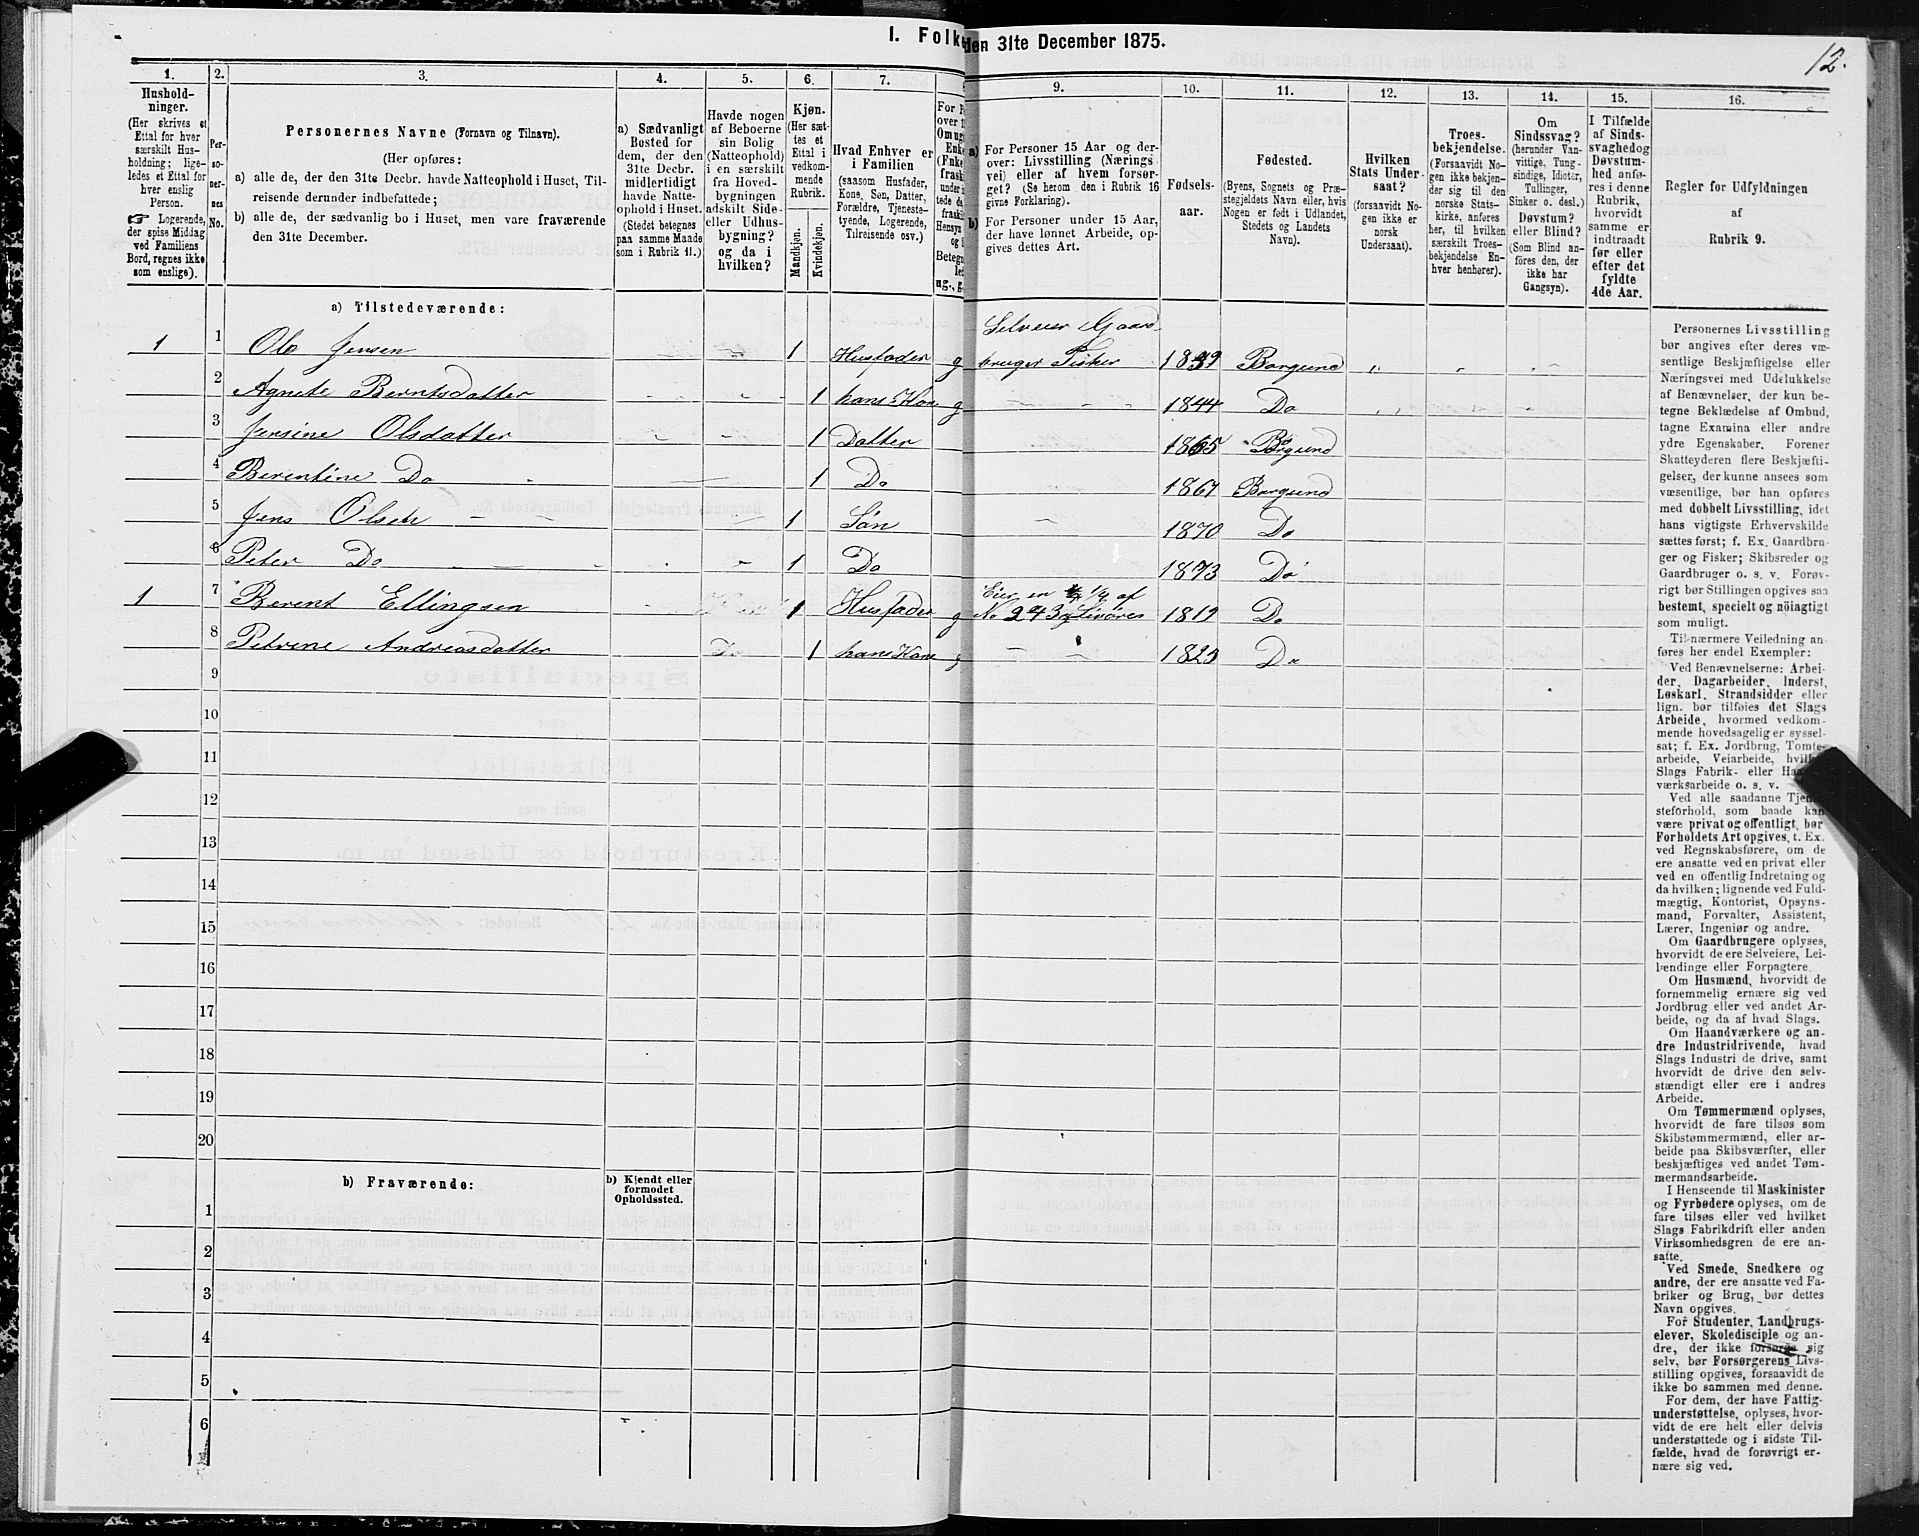 I. Folke den 31te December 1875.
12.
1.
Hushold-
ninger.
(Her skrives et
Ettal for hver
særskilt Hus-
holdning; lige-
ledes et Ettal for
hver enslig
Person.
☞ Logerende,
der spise Middag
ved Familiens
Bord, regnes ikke
som enslige).
2.
Per-
so-
ner-
nes
No.
3.
Personernes Navne (Fornavn og Tilnavn).
(Her opføres:
a) alle de, der den 31te Decbr. havde Natteophold i Huset, Til-
reisende derunder indbefattede;
b) alle de, der sædvanlig bo i Huset, men vare fraværende
den 31te December.
4.
a) Sædvanligt
Bosted for
dem, der den
31te Decbr.
midlertidigt
havde Natte-
ophold i Huset.
(Stedet betegnes
paa samme Maade
som i Rubrik 11.)
5.
Havde nogen
af Beboerne
sin Bolig
(Natteophold)
i en særskilt
fra Hoved-
bygningen
adskilt Side-
eller Udhus-
bygning?
og da i
hvilken?
6.
Kjøn.
(Her sæt-
tes et
Ettal i
vedkom-
mende
Rubrik.
Mandkjøn.
Kvindekjøn.
7.
Hvad Enhver er
i Familien
(saasom Husfader,
Kone, Søn, Datter,
Forældre, Tjeneste-
tyende, Logerende,
Tilreisende osv.)
For P
over 1
Om ug
Enke
(Enke
fraski
under i
tede da
fraskil
Hensyn
og f
Betegn
let
ug., g.
9.
a) For Personer 15 Aar og der-
over: Livsstilling (Nærings-
vei) eller af hvem forsør-
get? (Se herom den i Rubrik 16
givne Forklaring).
b) For Personer under 15 Aar,
der have lønnet Arbeide, op-
gives dettes Art.
10.
Fødsels-
aar.
11.
Fødested.
(Byens, Sognets og Præ-
stegjeldets Navn eller, hvis
Nogen er født i Udlandet,
Stedets og Landets
Navn).
12.
Hvilken
Stats Under-
saat?
(forsaavidt No-
gen ikke er
norsk
Undersaat).
13.
Troes-
bekjendelse.
(Forsaavidt No-
gen ikke bekjen-
der sig til den
norske Stats-
kirke, anføres
her, til hvilken
særskilt Troes-
bekjendelse En-
hver henhører).
14.
Om
Sindssvag?
(herunder Van-
vittige, Tung-
sindige, Idioter,
Tullinger,
Sinker o. desl.)
Døvstum?
eller Blind?
(Som Blind an-
føres den, der
ikke har
Gangsyn).
15.
I Tilfælde
af Sinds-
svaghedog
Døvstum-
hed anfø-
res i denne
Rubrik,
hvorvidt
samme er
indtraadt
før eller
efter det
fyldte
4de Aar.
16.
Regler for Udfyldningen
af
Rubrik 9.
a) Tilstedeværende:
1 1 Ole Jensen 1 Husfader g Selveier Gaard-
bruger Fisker 1839 Borgund
2 Agnete Berntsdatter 1 hans Kone g 1844 Do
3 Jensine Olsdatter 1 Datter 1865 Borgund
4 Berentine Do 1 Do 1867 Borgund
5 Jens Olsen 1 Søn 1870 Do
6 Peter Do 1 Do 1873 Do
1 7 Berent Ellingsen 1 Husfader g Eier en 1/4 af
No 243 1819 Do
8 Petrine Andreasdatter Do 1 hans Kone g 1823 Do
9
10
11
12
13
14
15
16
17
18
19
20
b) Fraværende:
b) Kjendt eller
formodet
Opholdssted.
1
2
3
4
5
6
Personernes Livsstilling
bør angives efter deres væ-
sentlige Beskjæftigelse eller
Næringsvei med Udelukkelse
af Benævnelser, der kun be-
tegne Beklædelse af Ombud,
tagne Examina eller andre
ydre Egenskaber. Forener
Skatteyderen flere Beskjæfti-
gelser, der kunne ansees som
væsentlige, bør han opføres
med dobbelt Livsstilling, idet
hans vigtigste Erhvervskilde
sættes først; f. Ex. Gaardbru-
ger og Fisker; Skibsreder og
Gaardbruger o. s. v. Forøv-
rigt bør Stillingen opgives saa
bestemt, specielt og nöiagtigt
som muligt.
Til nærmere Veiledning an-
føres her endel Exempler:
Ved Benævnelserne: Arbei-
der, Dagarbeider, Inderst,
Løskarl, Strandsidder eller
lign. bør tilføies det Slags
Arbeide, hvormed vedkom-
mende hovedsagelig er syssel-
sat; f. Ex. Jordbrug, Tomte-
arbeide, Veiarbeide, hvilket
Slags Fabrik- eller Haand-
værksarbeide o. s. v.
Ved alle saadanne Tjene-
steforhold, som baade kan
være privat og offentligt, bør
Forholdets Art opgives, t. Ex.
ved Regnskabsførere, om de
ere ansatte ved en privat eller
ved en offentlig Indretning og
da hvilken; lignende ved Fuld-
mægtig, Kontorist, Opsyns-
mand, Forvalter, Assistent,
Lærer, Ingeniør og andre.
Om Gaardbrugere oplyses,
hvorvidt de ere Selveiere, Lei-
lændinge eller Forpagtere.
Om Husmænd, hvorvidt de
fornemmelig ernære sig ved
Jordbrug eller ved andet Ar-
beide, og da af hvad Slags.
Om Haandværkere og an-
dre Industridrivende, hvad
Slags Industri de drive, samt
hvorvidt de drive den selv-
stændigt eller ere i andres
Arbeide.
Om Tømmermænd oplyses,
hvorvidt de fare tilsøs som
Skibstømmermænd, eller ar-
beide paa Skibsværfter, eller
beskjæftiges ved andet Tøm-
mermandsarbeide.
I Henseende til Maskinister
og Fyrbødere oplyses, om de
fare tilsøs eller ved hvilket
Slags Fabrikdrift eller anden
Virksomhedsgren de ere an-
satte.
Ved Smede, Snedkere og
andre, der ere ansatte ved Fa-
briker og Brug, bør dettes
Navn opgives.
For Studenter, Landbrugs-
elever, Skoledisciple og an-
dre, der ikke forsørge sig
selv, bør Forsørgerens Livs-
stilling opgives, forsaavidt de
ikke bo sammen med denne.
For dem, der have Fattig-
understøttelse, oplyses, hvor-
vidt de ere helt eller delvis
understøttede og i sidste Til-
fælde, hvad de forøvrigt er-
nære sig ved.